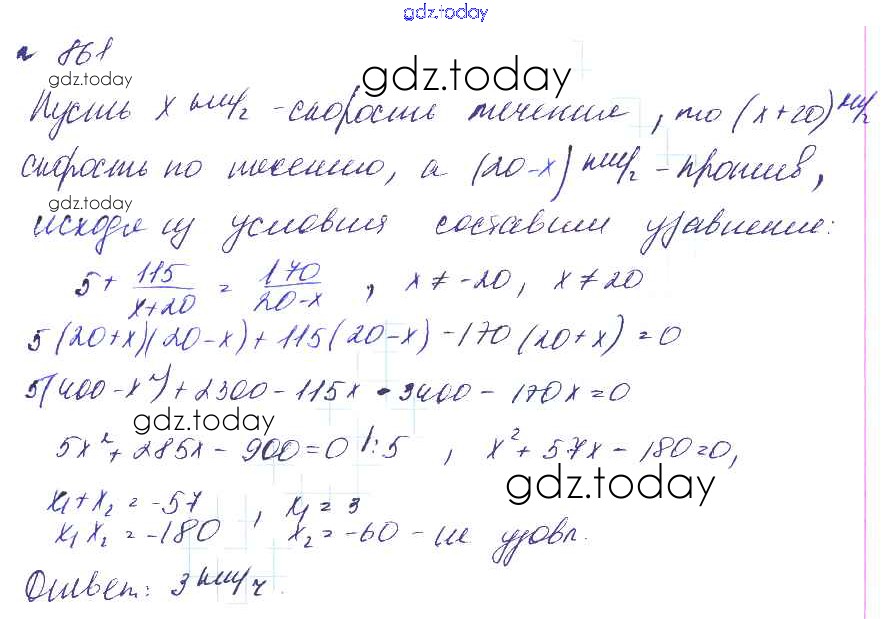 gdz.today
n 861
gdz.today
gdz.today
Пусть x км/ч - скорость течения, то (x+20) км/ч
скорость по течению, а (20-x) км/ч - против,
gdz.today
исходя из условия составим уравнение:
5 + 115/(x+20) = 170/(20-x) , x ≠ -20, x ≠ 20
5(20+x)(20-x) + 115(20-x) - 170(20+x) = 0
5(400-x²) + 2300 - 115x - 3400 - 170x = 0
gdz.today
5x² + 285x - 900 = 0 |:5 , x² + 57x - 180 = 0,
gdz.today
x₁ + x₂ = -57 , x₁ = 3
x₁x₂ = -180 x₂ = -60 - не удовл.
Ответ: 3 км/ч.